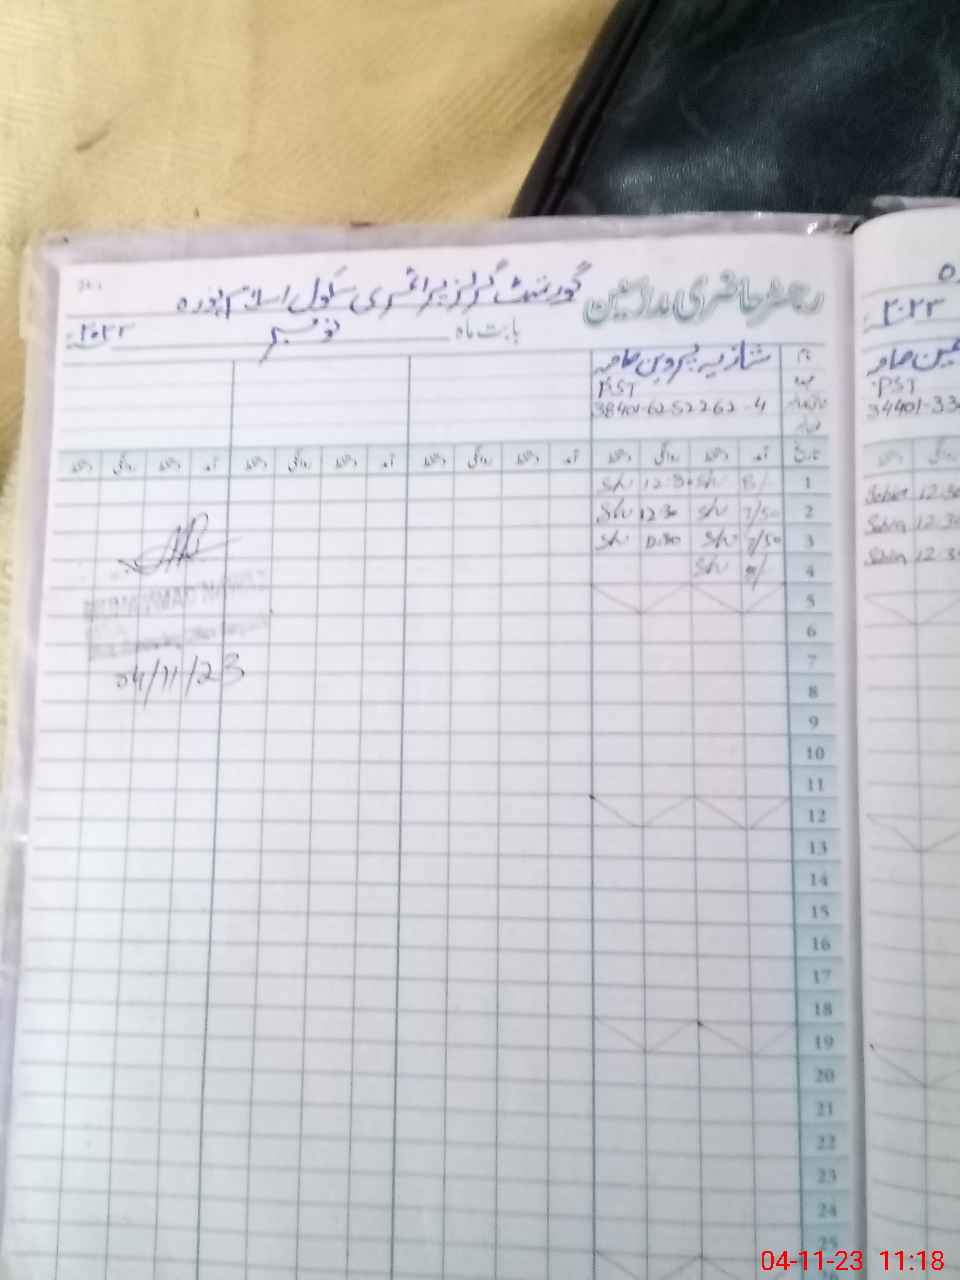 رجسٹر حاضری مدرسین گورنمنٹ گرلز پرائمری سکول اسلام پورہ
بابت ماہ نومبر ۲۰۲۳
نام شازیہ پروین صاحبہ
عہدہ PST
38401-6252262-4
تاریخ آمد دستخط روانگی دستخط آمد دستخط روانگی دستخط آمد دستخط روانگی دستخط
1 8/- Sh/ 12:30 Sh/
2 7/50 Sh/ 12 30 Sh/
3 7/50 Sh/ 12.30 Sh/
4 8/- Sh/
5
6
7
8
9
10
11
12
13
14
15
16
17
18
19
20
21
22
23
24
25
MUHAMMAD NAWAZ
04/11/23
۲۰۲۳
PST
34401-33
12:30
12:30
12:30
04-11-23 11:18